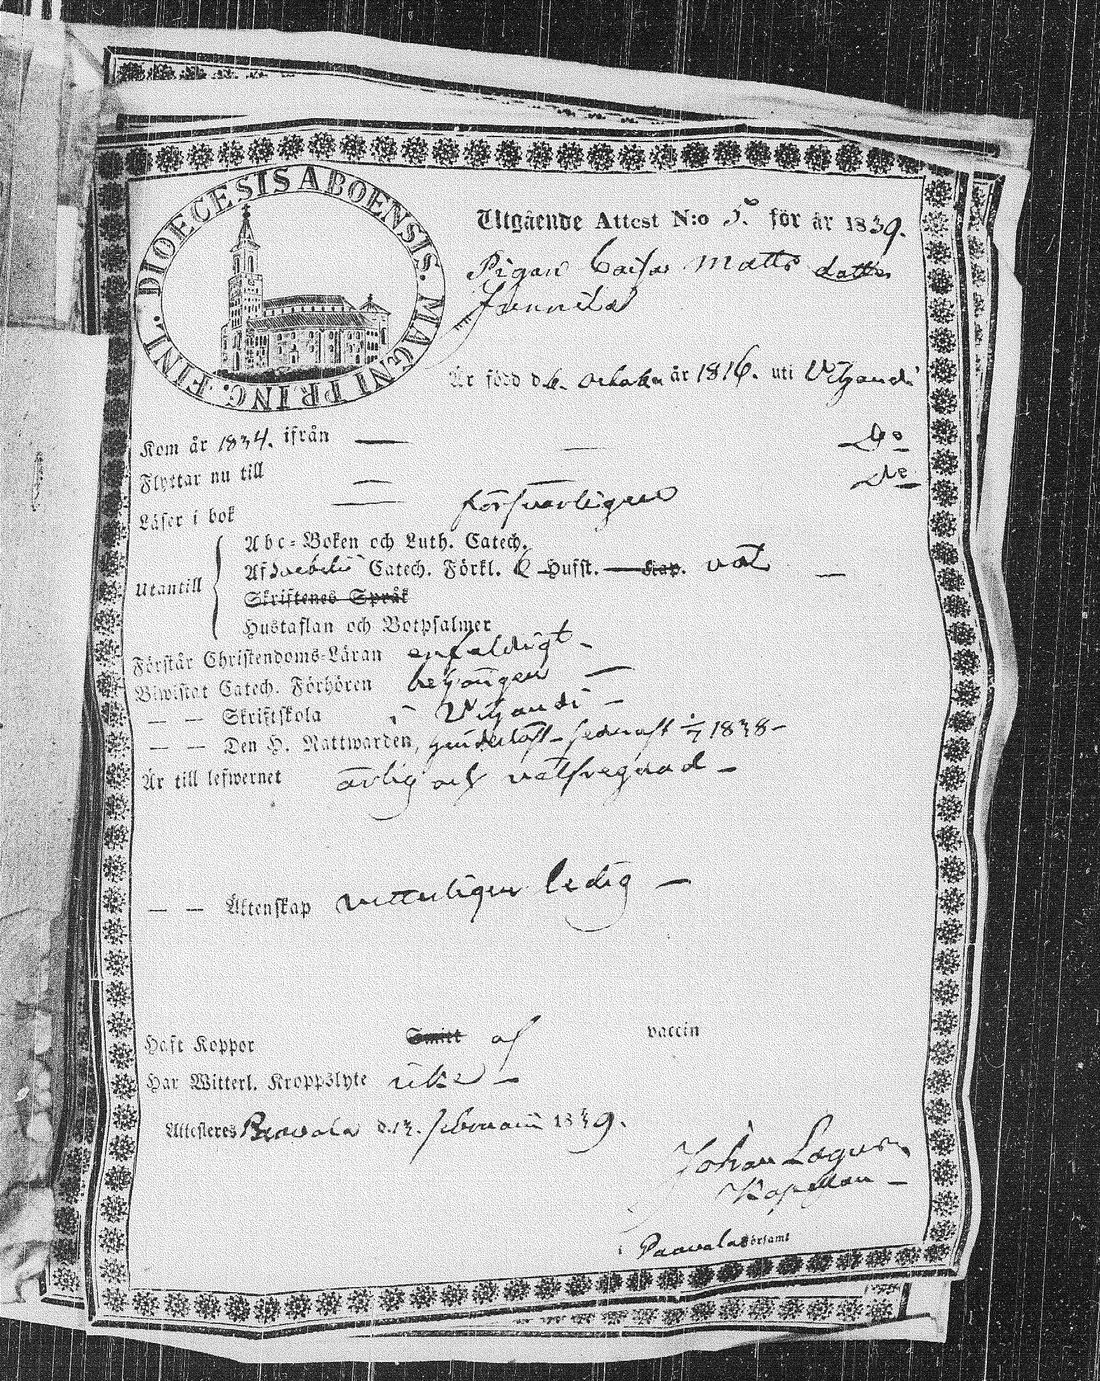 DIOECESIS ABOENSIS. MAGNI PRINC. FINL.
Utgående Attest N:o 5. för år 1839.
Pigan Caisa Matts dotter
Är född d. 6. October år 1816. uti Vihandi
Kom år 1834. ifrån — — Do
Flyttar nu till — — Do
Läser i bok — försvarligen
Abc-Boken och Luth. Catech.
Utantill Af Svebelii Catech. Förkl. & Husst. — Kap. väl —
Skriftenes Språk
Hustaflan och Botpsalmer
Förstår Christendoms-Läran enfaldigt –
Biwistat Catech. Förhören —
— — Skriftskola i Vihandi –
— — Den H. Nattwarden, sednast 1/7 1838 –
Är till lefwernet ärlig och välfregdad –
— — Äktenskap vitterligen ledig —
Haft Koppor Smitt af vaccin
Har Witterl. Kroppslyte icke –
Attesteres Paavola d. 12. februarii 1839.
Johan Lagus
Kapellan –
i Paavola